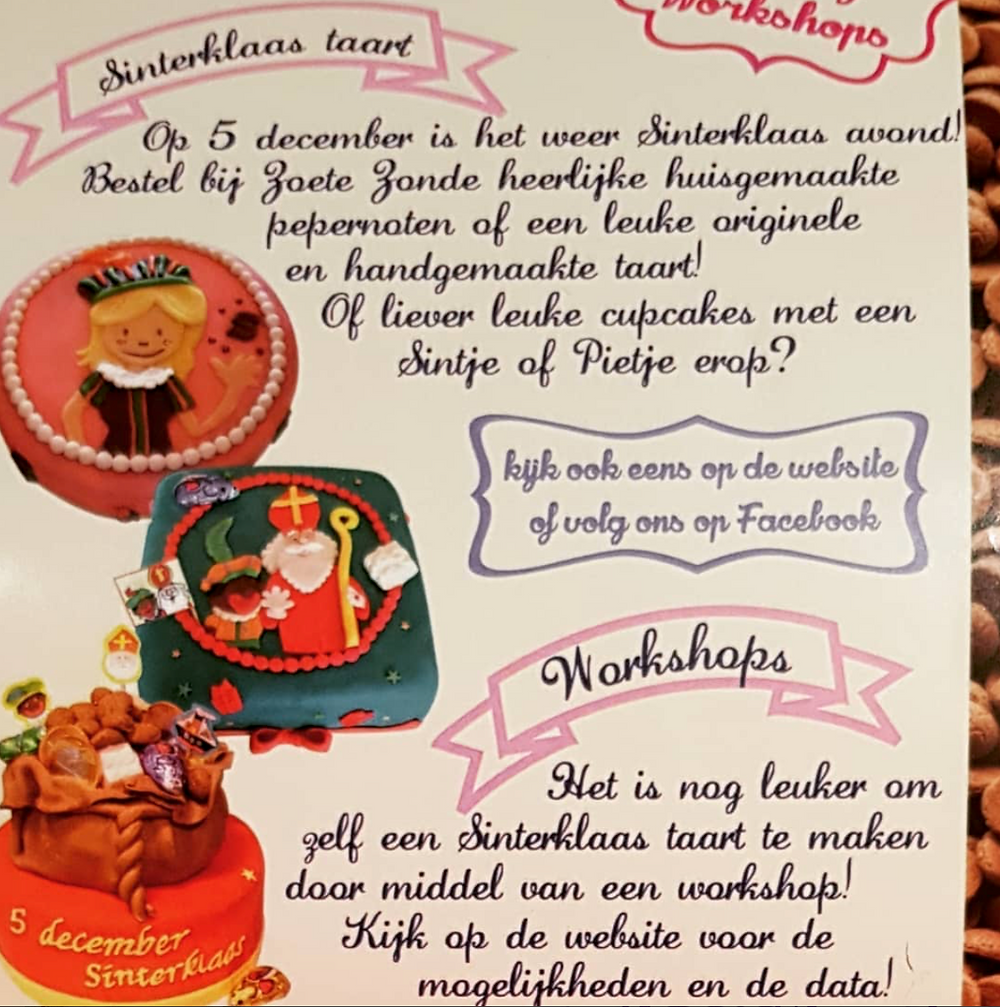 Workshops
Sinterklaas taart
Op 5 december is het weer Sinterklaas avond!
Bestel bij Zoete Zonde heerlijke huisgemaakte
pepernoten of een leuke originele
en handgemaakte taart!
Of liever leuke cupcakes met een
Sintje of Pietje erop?
kijk ook eens op de website
of volg ons op Facebook
Workshops
Het is nog leuker om
zelf een Sinterklaas taart te maken
door middel van een workshop!
Kijk op de website voor de
mogelijkheden en de data!
5 december
Sinterklaas